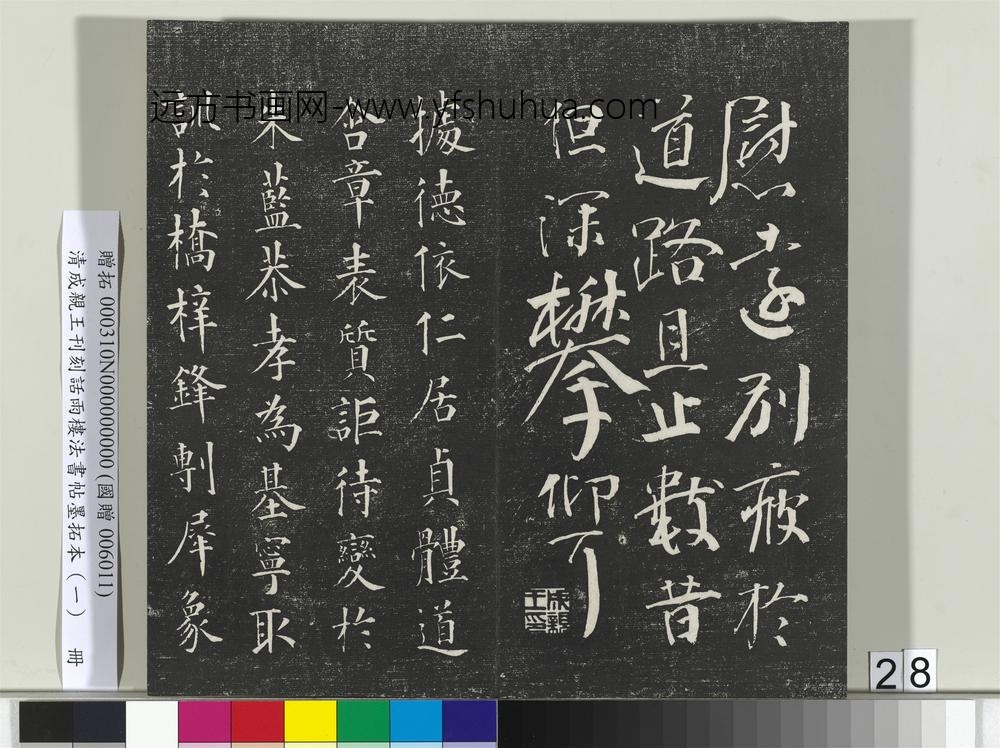 慰十五遠別疲於
道路且止數昔
但深攀仰丁
成親王印
據德依仁居貞體道
含章表質詎待變於
朱藍恭孝為基寧取
訓於橋梓鋒剸犀象
远方书画网-www.yfshuhua.com
贈拓 000310N000000000(國贈 006011)
清成親王刊刻話雨樓法書帖墨拓本(一) 冊
28